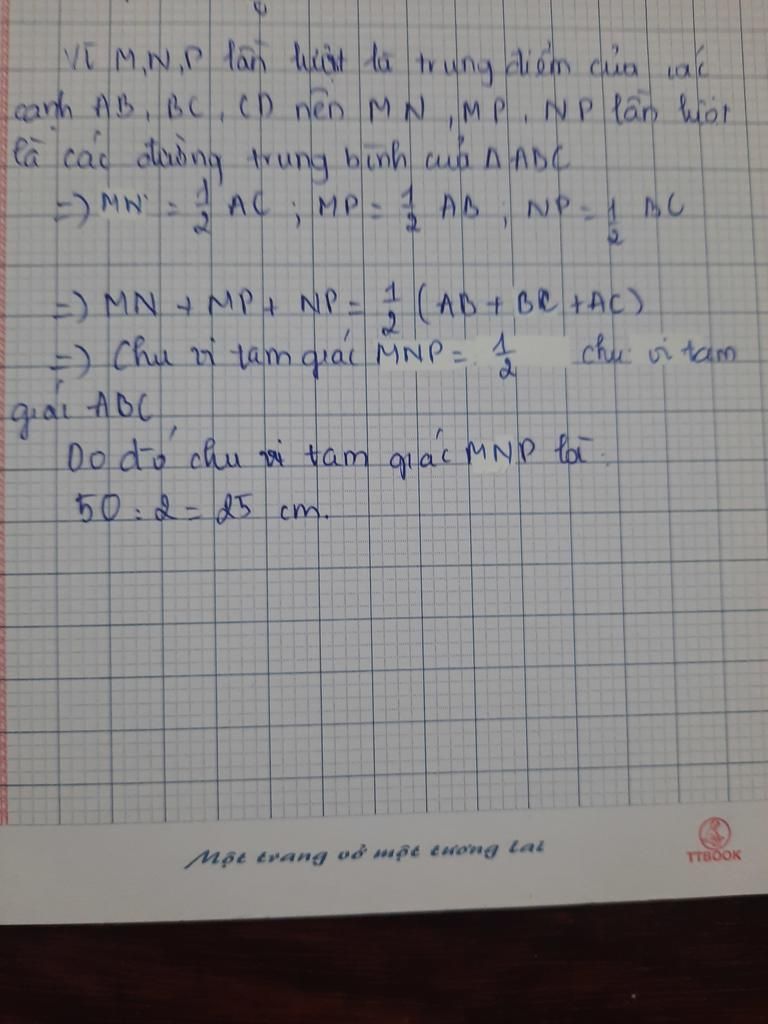 Vì M,N,P lần lượt là trung điểm của các
cạnh AB, BC, CD nên MN, MP, NP lần lượt
là các đường trung bình của ΔABC
=> MN = 1/2 AC ; MP = 1/2 AB ; NP = 1/2 BC
=> MN + MP + NP = 1/2 (AB + BC + AC)
=> Chu vi tam giác MNP = 1/2 chu vi tam
giác ABC
Do đó, chu vi tam giác MNP là
50 : 2 = 25 cm.
Một trang vở một tương lai
TTBOOK